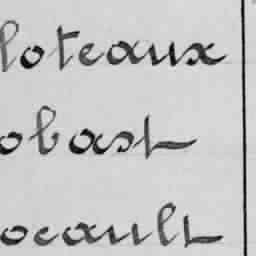 loteaux
obast
ocault